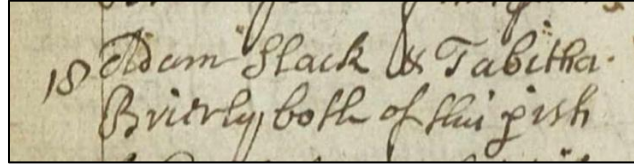 18 Adam Slack & Tabitha
Brierly, both of this pish